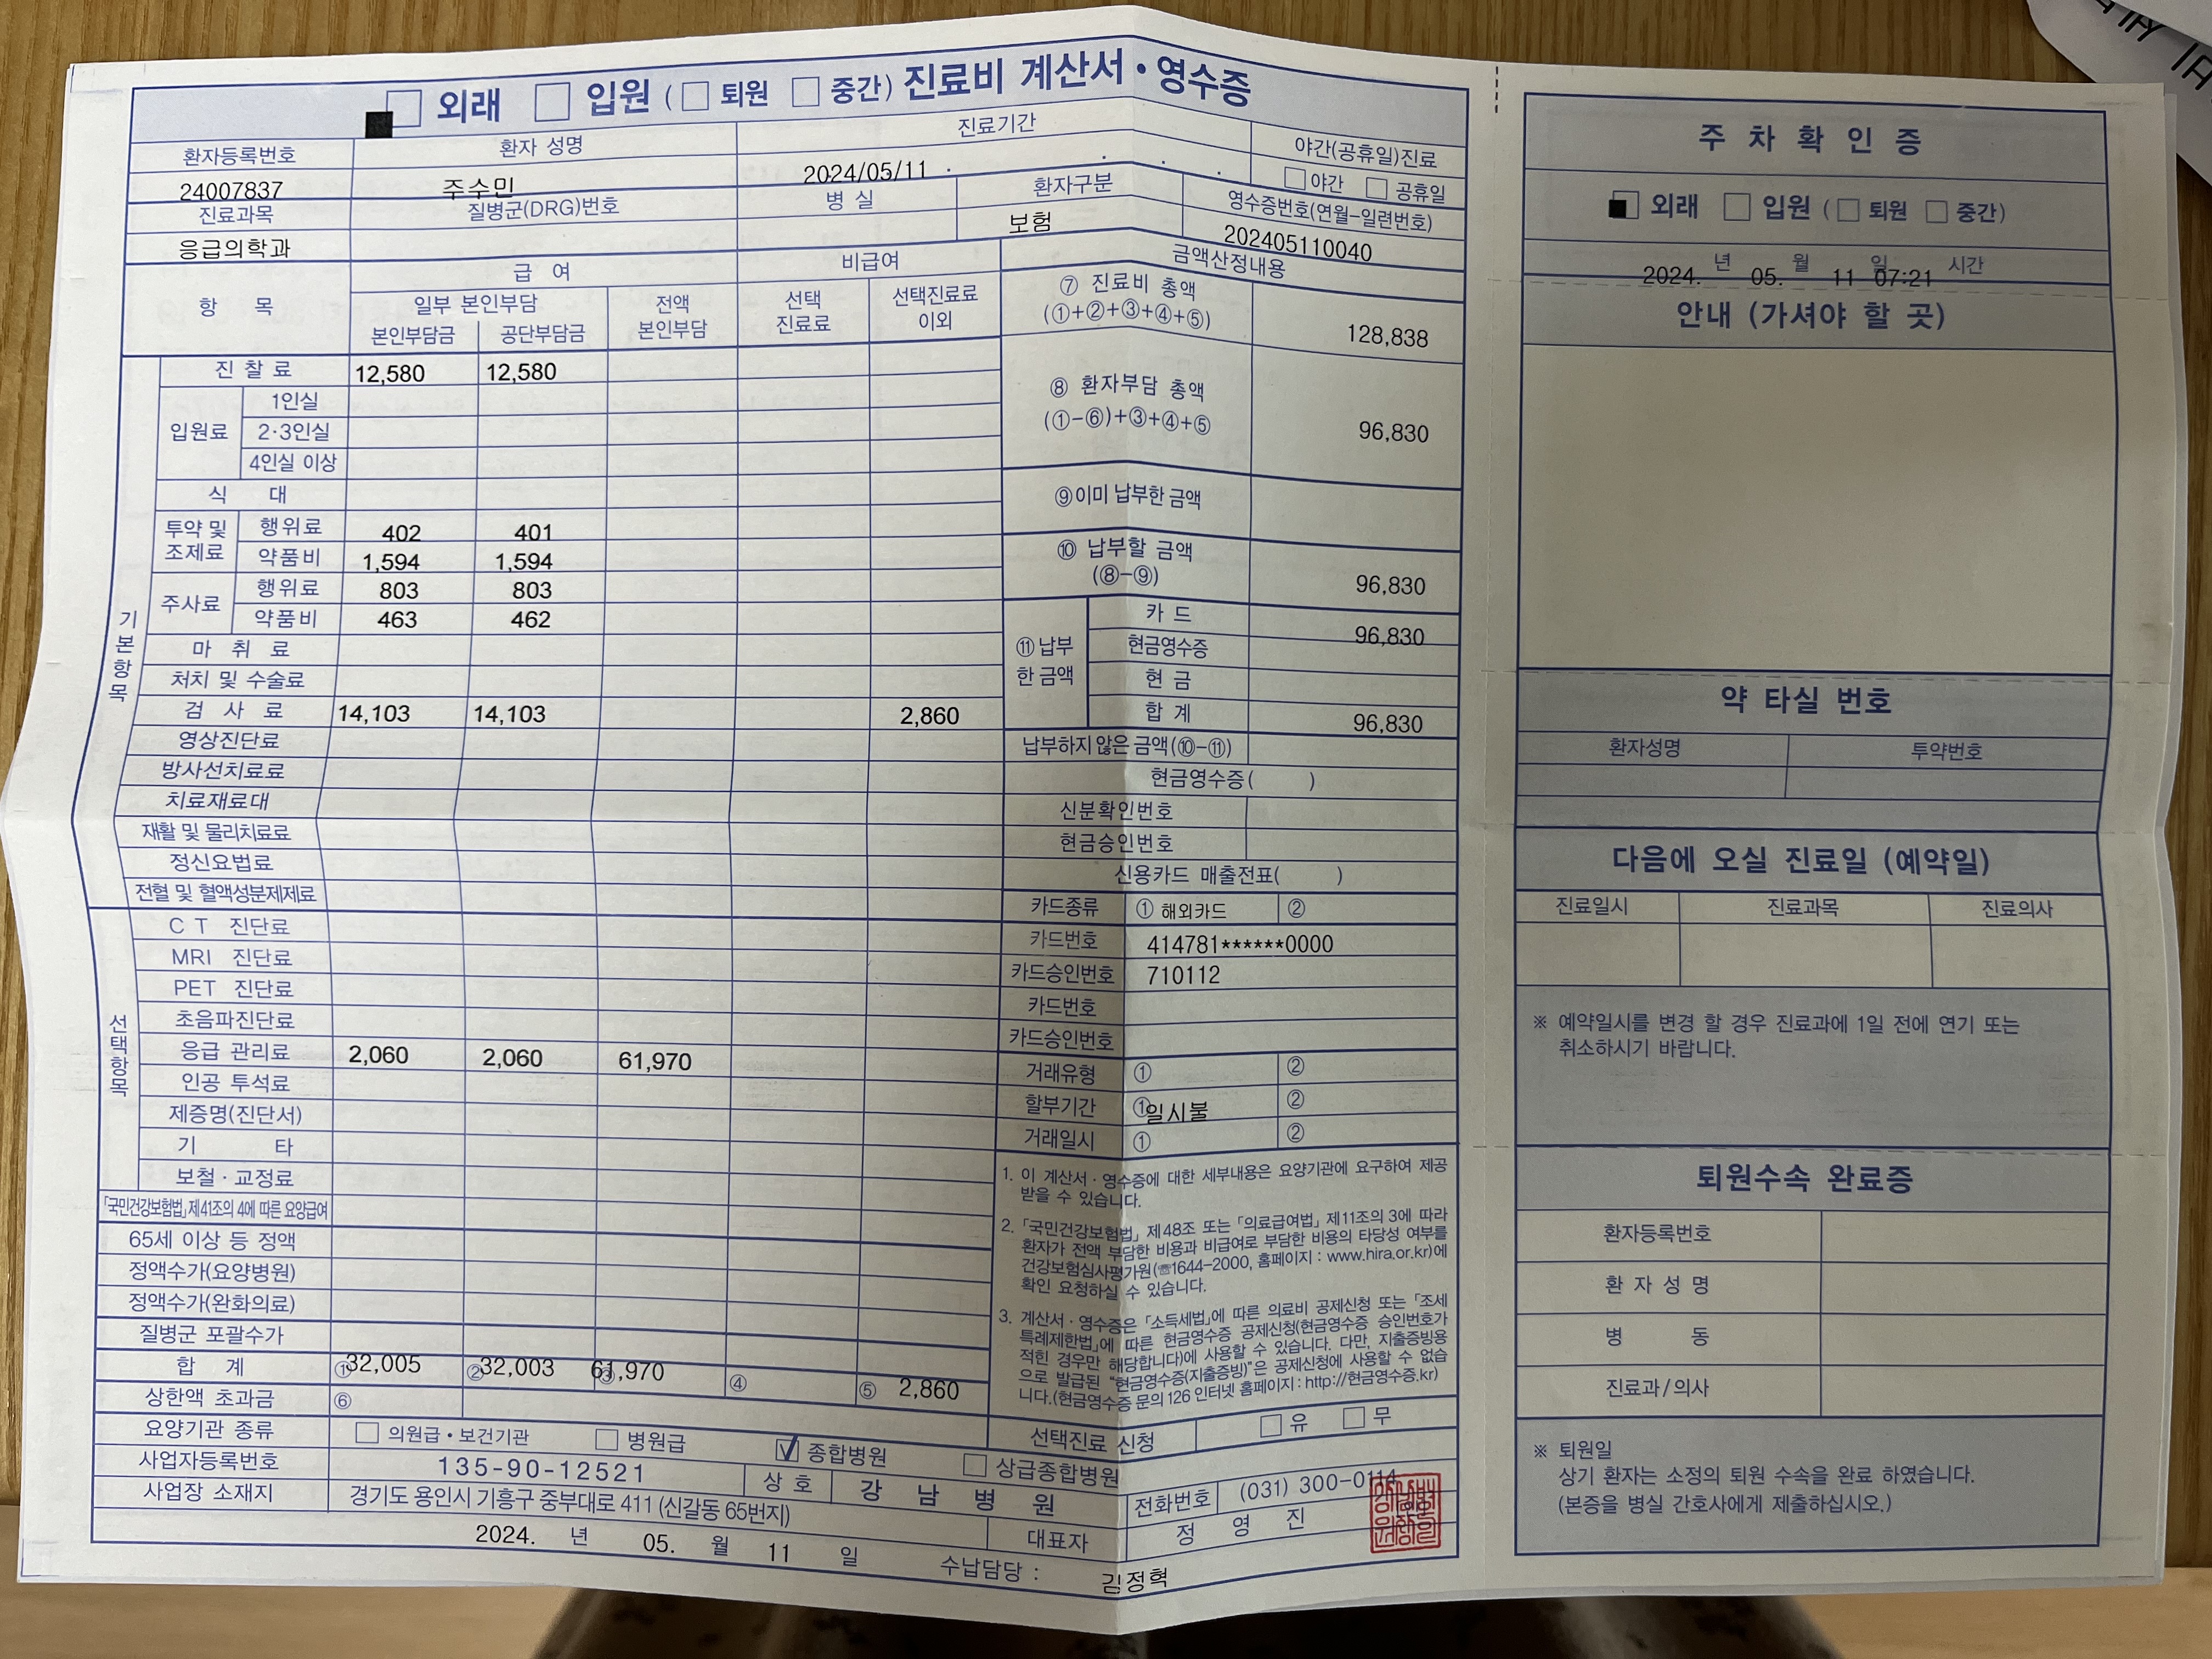 외래 입원 ( 퇴원 중간) 진료비 계산서 • 영수증
환자등록번호 환자 성명 진료기간 야간(공휴일)진료
24007837 주수민 2024/05/11 . . . 야간 공휴일
진료과목 질병군(DRG)번호 병 실 환자구분 영수증번호(연월-일련번호)
응급의학과 보험 202405110040
항 목 급 여 비급여 금액산정내용
일부 본인부담 전액 본인부담 선택 진료료 선택진료료 이외
본인부담금 공단부담금
⑦ 진료비 총액 (①+②+③+④+⑤) 128,838
기본항목
진 찰 료 12,580 12,580
입원료 1인실
2·3인실
4인실 이상
⑧ 환자부담 총액 (①-⑥)+③+④+⑤ 96,830
식 대
⑨이미 납부한 금액
투약 및 조제료 행위료 402 401
약품비 1,594 1,594
⑩ 납부할 금액 (⑧-⑨) 96,830
주사료 행위료 803 803
약품비 463 462
마 취 료
처치 및 수술료
검 사 료 14,103 14,103 2,860
⑪ 납부한 금액 카 드 96,830
현금영수증
현 금
합 계 96,830
영상진단료
방사선치료료
치료재료대
재활 및 물리치료료
정신요법료
전혈 및 혈액성분제제료
납부하지 않은 금액(⑩-⑪)
현금영수증( )
신분확인번호
현금승인번호
신용카드 매출전표( )
카드종류 ① 해외카드 ②
카드번호 414781******0000
카드승인번호 710112
카드번호
카드승인번호
거래유형 ① ②
할부기간 ①일시불 ②
거래일시 ① ②
선택항목
C T 진단료
MRI 진단료
PET 진단료
초음파진단료
응급 관리료 2,060 2,060 61,970
인공 투석료
제증명(진단서)
기 타
보철·교정료
「국민건강보험법」제41조의 4에 따른 요양급여
65세 이상 등 정액
정액수가(요양병원)
정액수가(완화의료)
질병군 포괄수가
합 계 ①32,005 ②32,003 ③61,970 ④ ⑤ 2,860
상한액 초과금 ⑥
1. 이 계산서·영수증에 대한 세부내용은 요양기관에 요구하여 제공
받을 수 있습니다.
2. 「국민건강보험법」 제48조 또는 「의료급여법」 제11조의 3에 따라
환자가 전액 부담한 비용과 비급여로 부담한 비용의 타당성 여부를
건강보험심사평가원(☏1644-2000, 홈페이지 : www.hira.or.kr)에
확인 요청하실 수 있습니다.
3. 계산서·영수증은 「소득세법」에 따른 의료비 공제신청 또는 「조세
특례제한법」에 따른 현금영수증 공제신청(현금영수증 승인번호가
적힌 경우만 해당합니다)에 사용할 수 있습니다. 다만, 지출증빙용
으로 발급된 "현금영수증(지출증빙)"은 공제신청에 사용할 수 없습
니다.(현금영수증 문의 126 인터넷 홈페이지 : http://현금영수증.kr)
요양기관 종류 의원급·보건기관 병원급 종합병원 상급종합병원 선택진료 신청 유 무
사업자등록번호 135-90-12521 상 호 강 남 병 원 전화번호 (031) 300-0114
사업장 소재지 경기도 용인시 기흥구 중부대로 411 (신갈동 65번지) 대표자 정 영 진
2024. 년 05. 월 11 일 수납담당 : 김정혁
주 차 확 인 증
외래 입원 ( 퇴원 중간)
2024. 년 05. 월 11 일 07:21 시간
안내 (가셔야 할 곳)
약 타실 번호
환자성명 투약번호
다음에 오실 진료일 (예약일)
진료일시 진료과목 진료의사
※ 예약일시를 변경 할 경우 진료과에 1일 전에 연기 또는
취소하시기 바랍니다.
퇴원수속 완료증
환자등록번호
환 자 성 명
병 동
진료과/의사
※ 퇴원일
상기 환자는 소정의 퇴원 수속을 완료 하였습니다.
(본증을 병실 간호사에게 제출하십시오.)